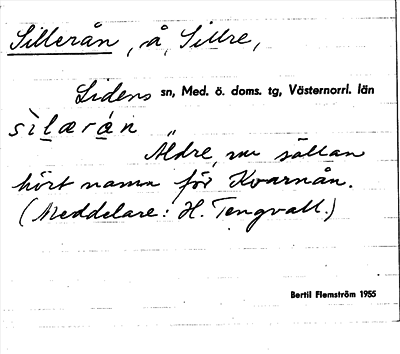 Sillerån, å, Sillre,
Lidens sn, Med. ö. doms. tg, Västernorrl. län
sìl̲ærá̲n
Äldre, nu sällan
hört namn för Kvarnån.
(Meddelare: H. Tengvall.)
Bertil Flemström 1955